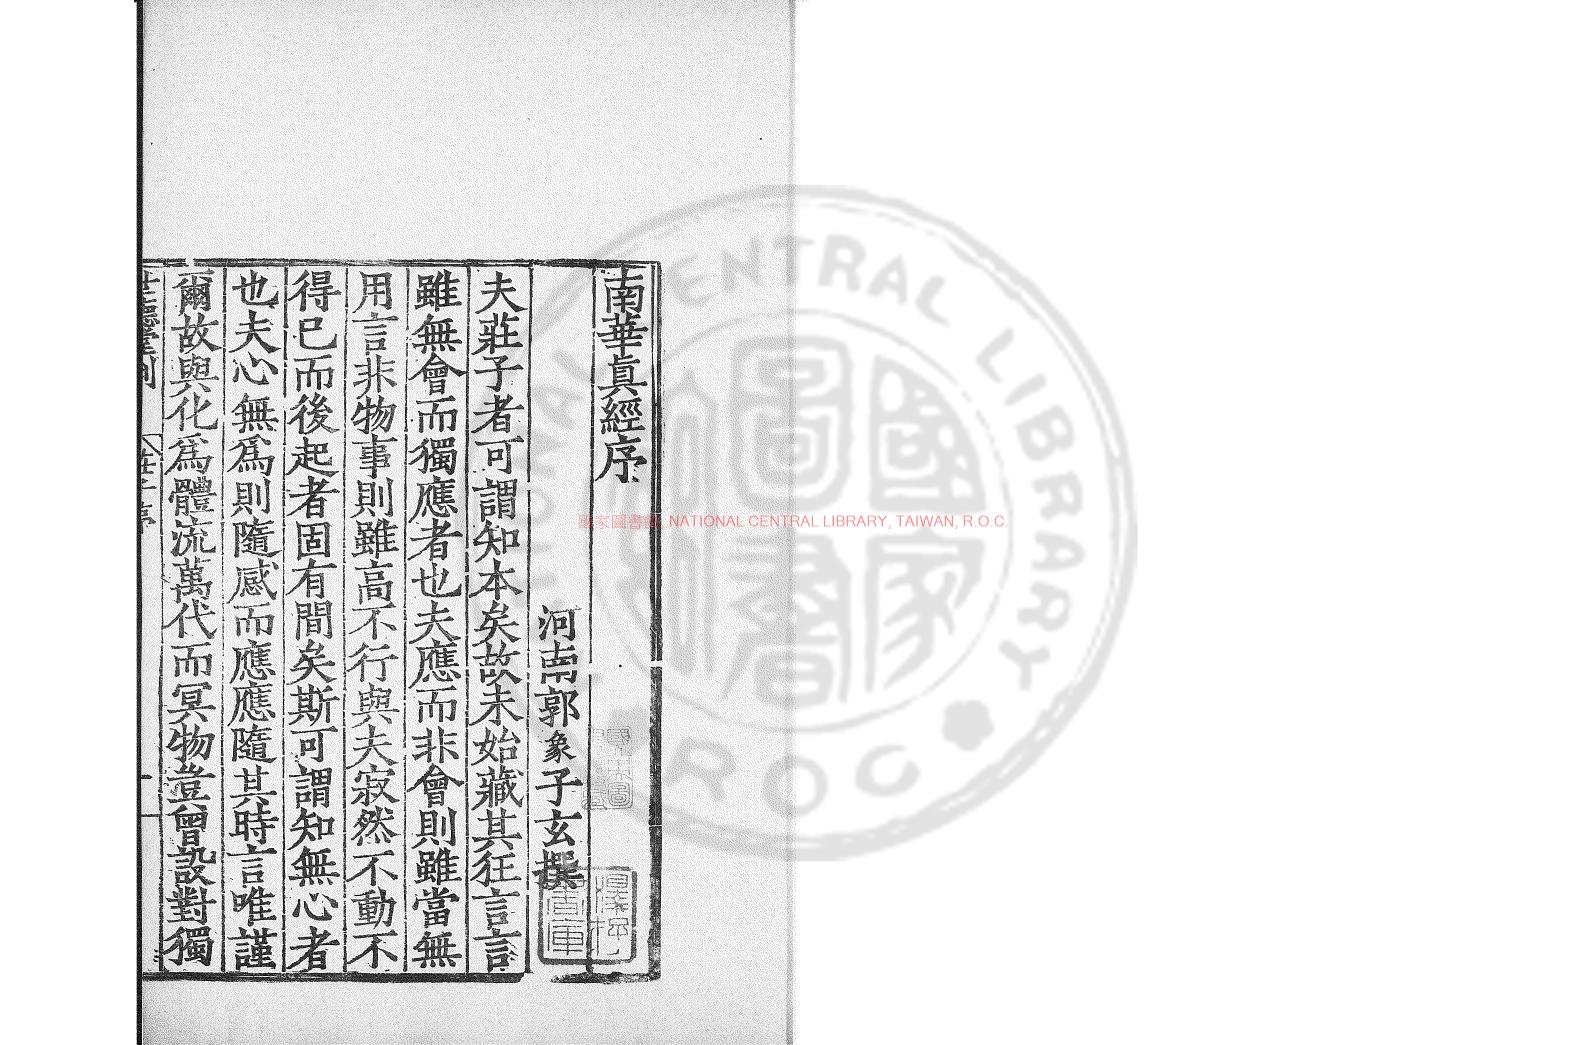 南華眞經序
河南郭象子玄撰
夫莊子者可謂知本矣故未始藏其狂言言
雖無會而獨應者也夫應而非會則雖當無
用言非物事則雖高不行與夫寂然不動不
得已而後起者固有間矣斯可謂知無心者
也夫心無爲則隨感而應應隨其時言唯謹
爾故與化爲體流萬代而冥物豈曾設對獨
國家圖書館, NATIONAL CENTRAL LIBRARY, TAIWAN, R.O.C.
NATIONAL CENTRAL LIBRARY
ROC
國家圖書館